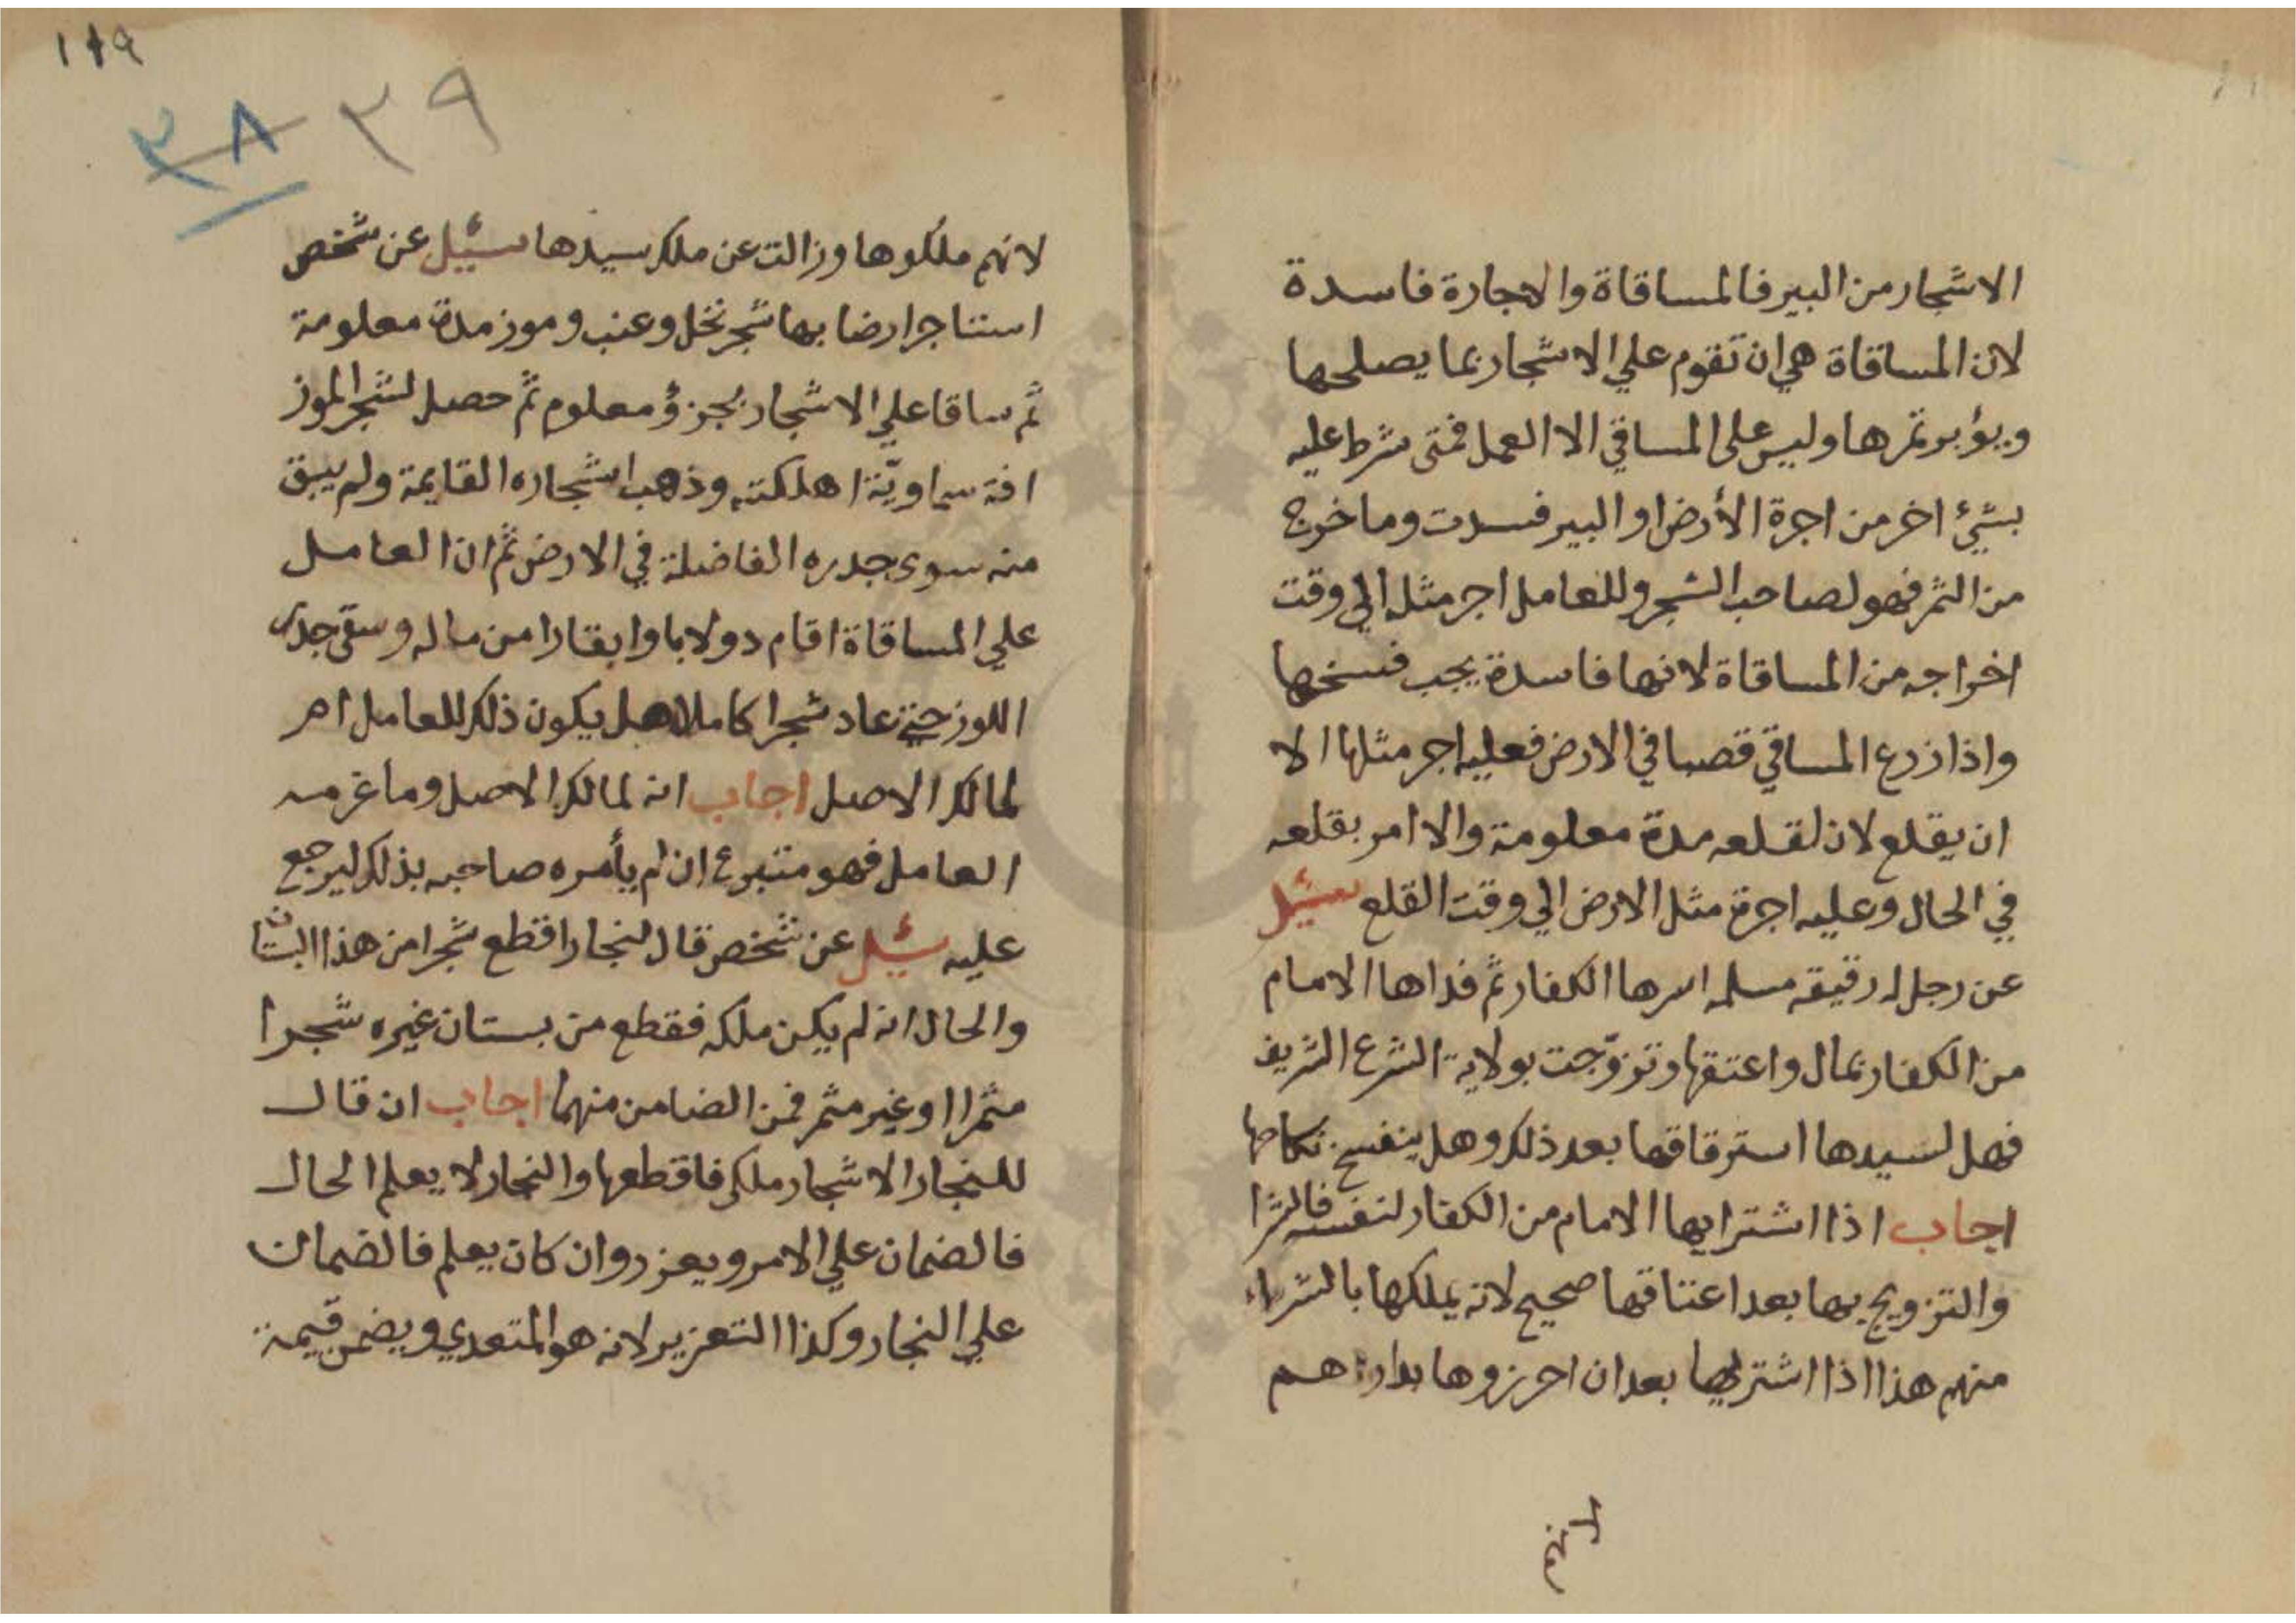 الاشجار من البير فالمساقاة والاجارة فاسدة
لان المساقاة هي ان تقوم علي الاشجار بما يصلحها
ويؤبر تمرها وليس على المساقي الا العمل فمتى شرط عليه
بشيئ اخر من اجرة الأرض او البير فسدت وما خرج
من الثمر فهو لصاحب الشجر وللعامل اجر مثله الي وقت
اخراجه من المساقاة لانها فاسدة يجب فسخها
واذا زرع المساقي قصبا في الارض فعليه اجر مثلها الا
ان يقلع لان لقلعه مدة معلومة والا امر بقلعه
في الحال وعليه اجرة مثل الارض الي وقت القلع سئيل
عن رجل له رقيقه مسلمه اسرها الكفار ثم فداها الامام
من الكفار بمال واعتقها وتزوّجت بولاية الشرع الشريف
فهل لسيدها استرقاقها بعد ذلك وهل ينفسخ نكاحها
اجاب اذا اشترايها الامام من الكفار لنفسه فالشرا
والتزويج بها بعد اعتاقها صحيح لانه يملكها بالشراء
منهم هذا اذا اشتريها بعد ان احرزوها بدارهم
لانهم
١٨٩
٣٨ ٣٩
لانهم ملكوها وزالت عن ملك سيدها سئيل عن شخص
استتاجر ارضا بها شجر نخل وعنب وموز مدة معلومة
ثم ساقا علي الاشجار بجزؤ معلوم ثم حصل لشجر الموز
افة سماويّة اهلكته وذهب اشجاره القايمة ولم يبق
منه سوى جدره الفاضلة في الارض ثم ان العامل
علي المساقاة اقام دولابا وابقارا من ماله وسقى جدر
اللوز حتي عاد شجرا كاملا هل يكون ذلك للعامل ام
لمالك الاصل اجاب انه لمالك الاصل وما غرمه
العامل فهو متبرع ان لم يأمره صاحبه بذلك ليرجع
عليه سئيل عن شخص قال لنجار اقطع شجرا من هذا البستان
والحال انه لم يكن ملكه فقطع من بستان غيره شجرا
مثمرا او غير مثمر فمن الضامن منهما اجاب ان قال
للنجار الاشجار ملكي فاقطعها والنجار لا يعلم الحال
فالضمان علي الامر ويعزر وان كان يعلم فالضمان
علي النجار وكذا التعزير لانه هو المتعدي ويضمن قيمة